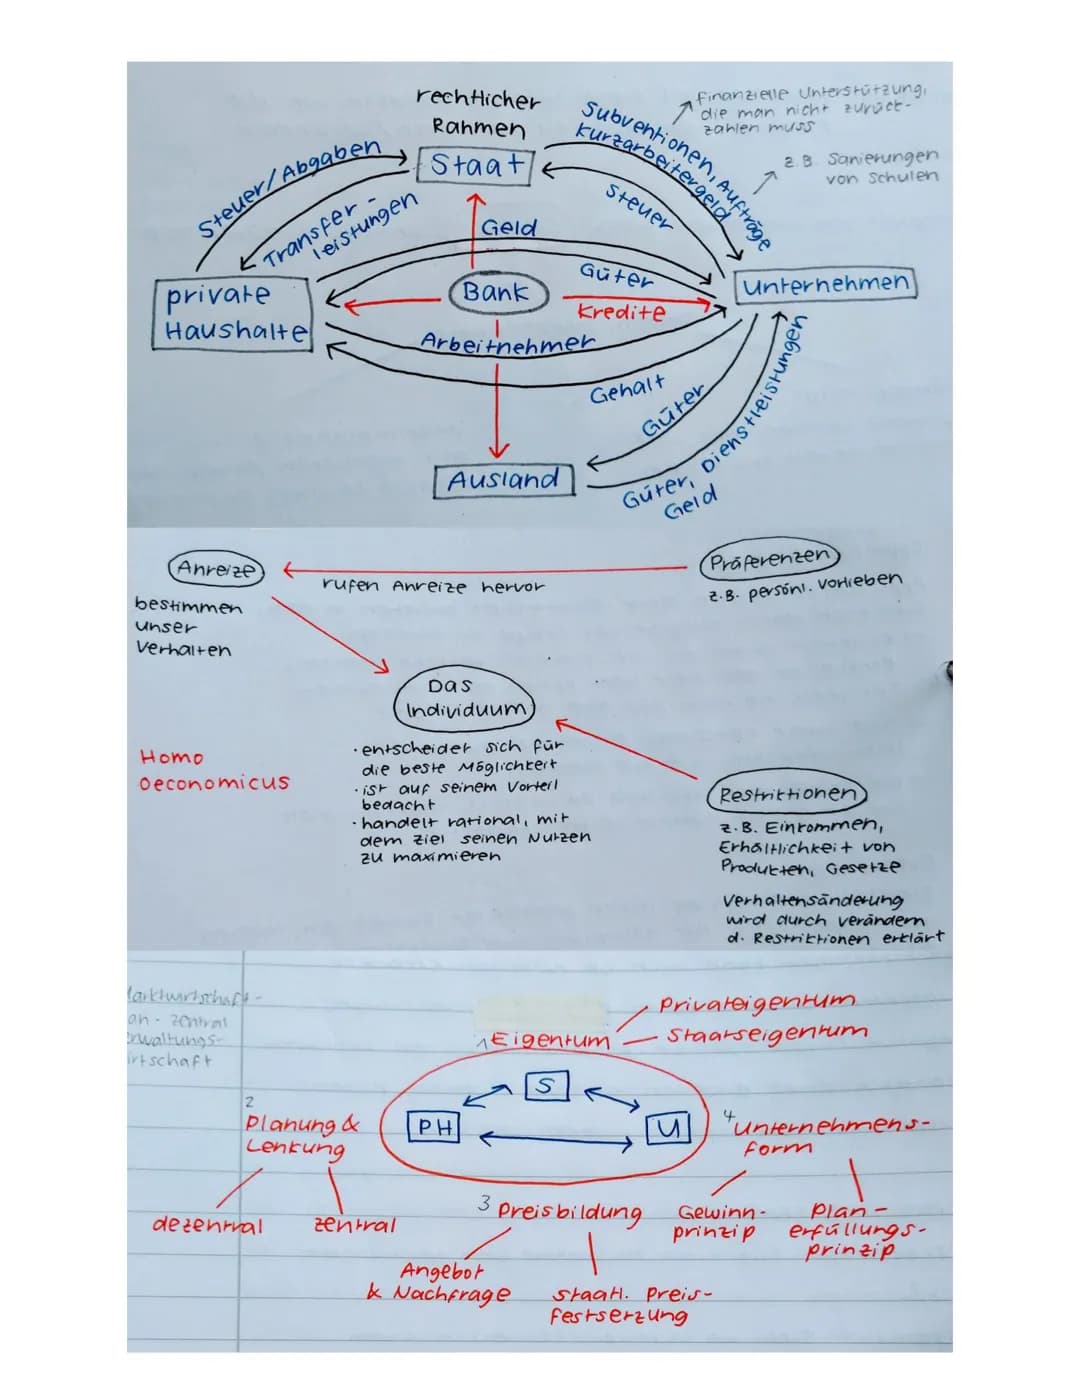 rechtlicher
Rahmen
Staat
Steuer/Abgaben
Transfer-
leistungen
Subventionen, Aufträge
Kurzarbeitergeld
Finanzielle Unterstützung,
die man nicht zurück-
zahlen muss
z.B. Sanierungen
von Schulen
Steuer
Geld
Güter
private
Haushalte
Bank
Kredite
Unternehmen
Arbeitnehmer
Gehalt
Güter
Ausland
Güter, Dienstleistungen
Geld
Anreize
bestimmen
unser
Verhalten
rufen Anreize hervor
Präferenzen
z.B. persönl. Vorlieben
Das
Individuum
· entscheidet sich für
die beste Möglichkeit
· ist auf seinem Vorteil
bedacht
· handelt rational, mit
dem Ziel seinen Nutzen
zu maximieren
Homo
oeconomicus
Restriktionen
z.B. Einkommen,
Erhältlichkeit von
Produkten, Gesetze
Verhaltensänderung
wird durch verändern
d. Restriktionen erklärt
Marktwirtschaft -
an - zentral
erwaltungs-
irtschaft
1 Eigentum
Privateigentum
Staatseigentum
S
PH
U
2
Planung &
Lenkung
dezentral
zentral
3 Preisbildung
Angebot
& Nachfrage
staatl. Preis-
festsetzung
4 Unternehmens-
form
Gewinn-
prinzip
Plan-
erfüllungs-
prinzip